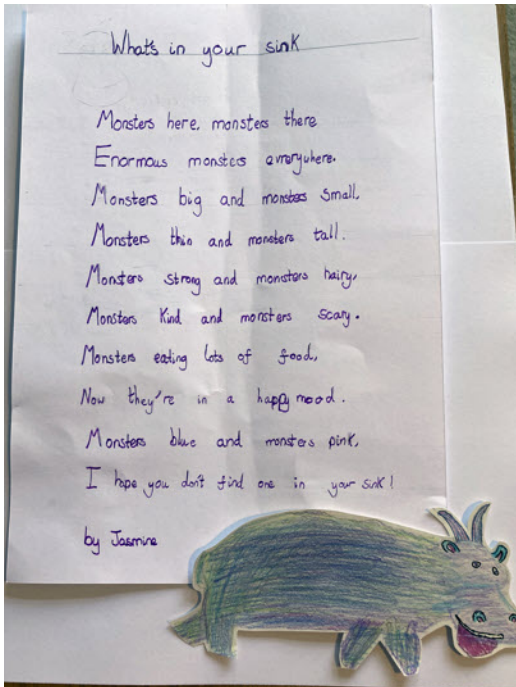 What's in your sink
Monsters here, monsters there
Enormous monsters everywhere.
Monsters big and monsters small,
Monsters thin and monsters tall.
Monsters strong and monsters hairy,
Monsters kind and monsters scary.
Monsters eating lots of food,
Now they're in a happy mood.
Monsters blue and monsters pink,
I hope you don't find one in your sink!
by Jasmine